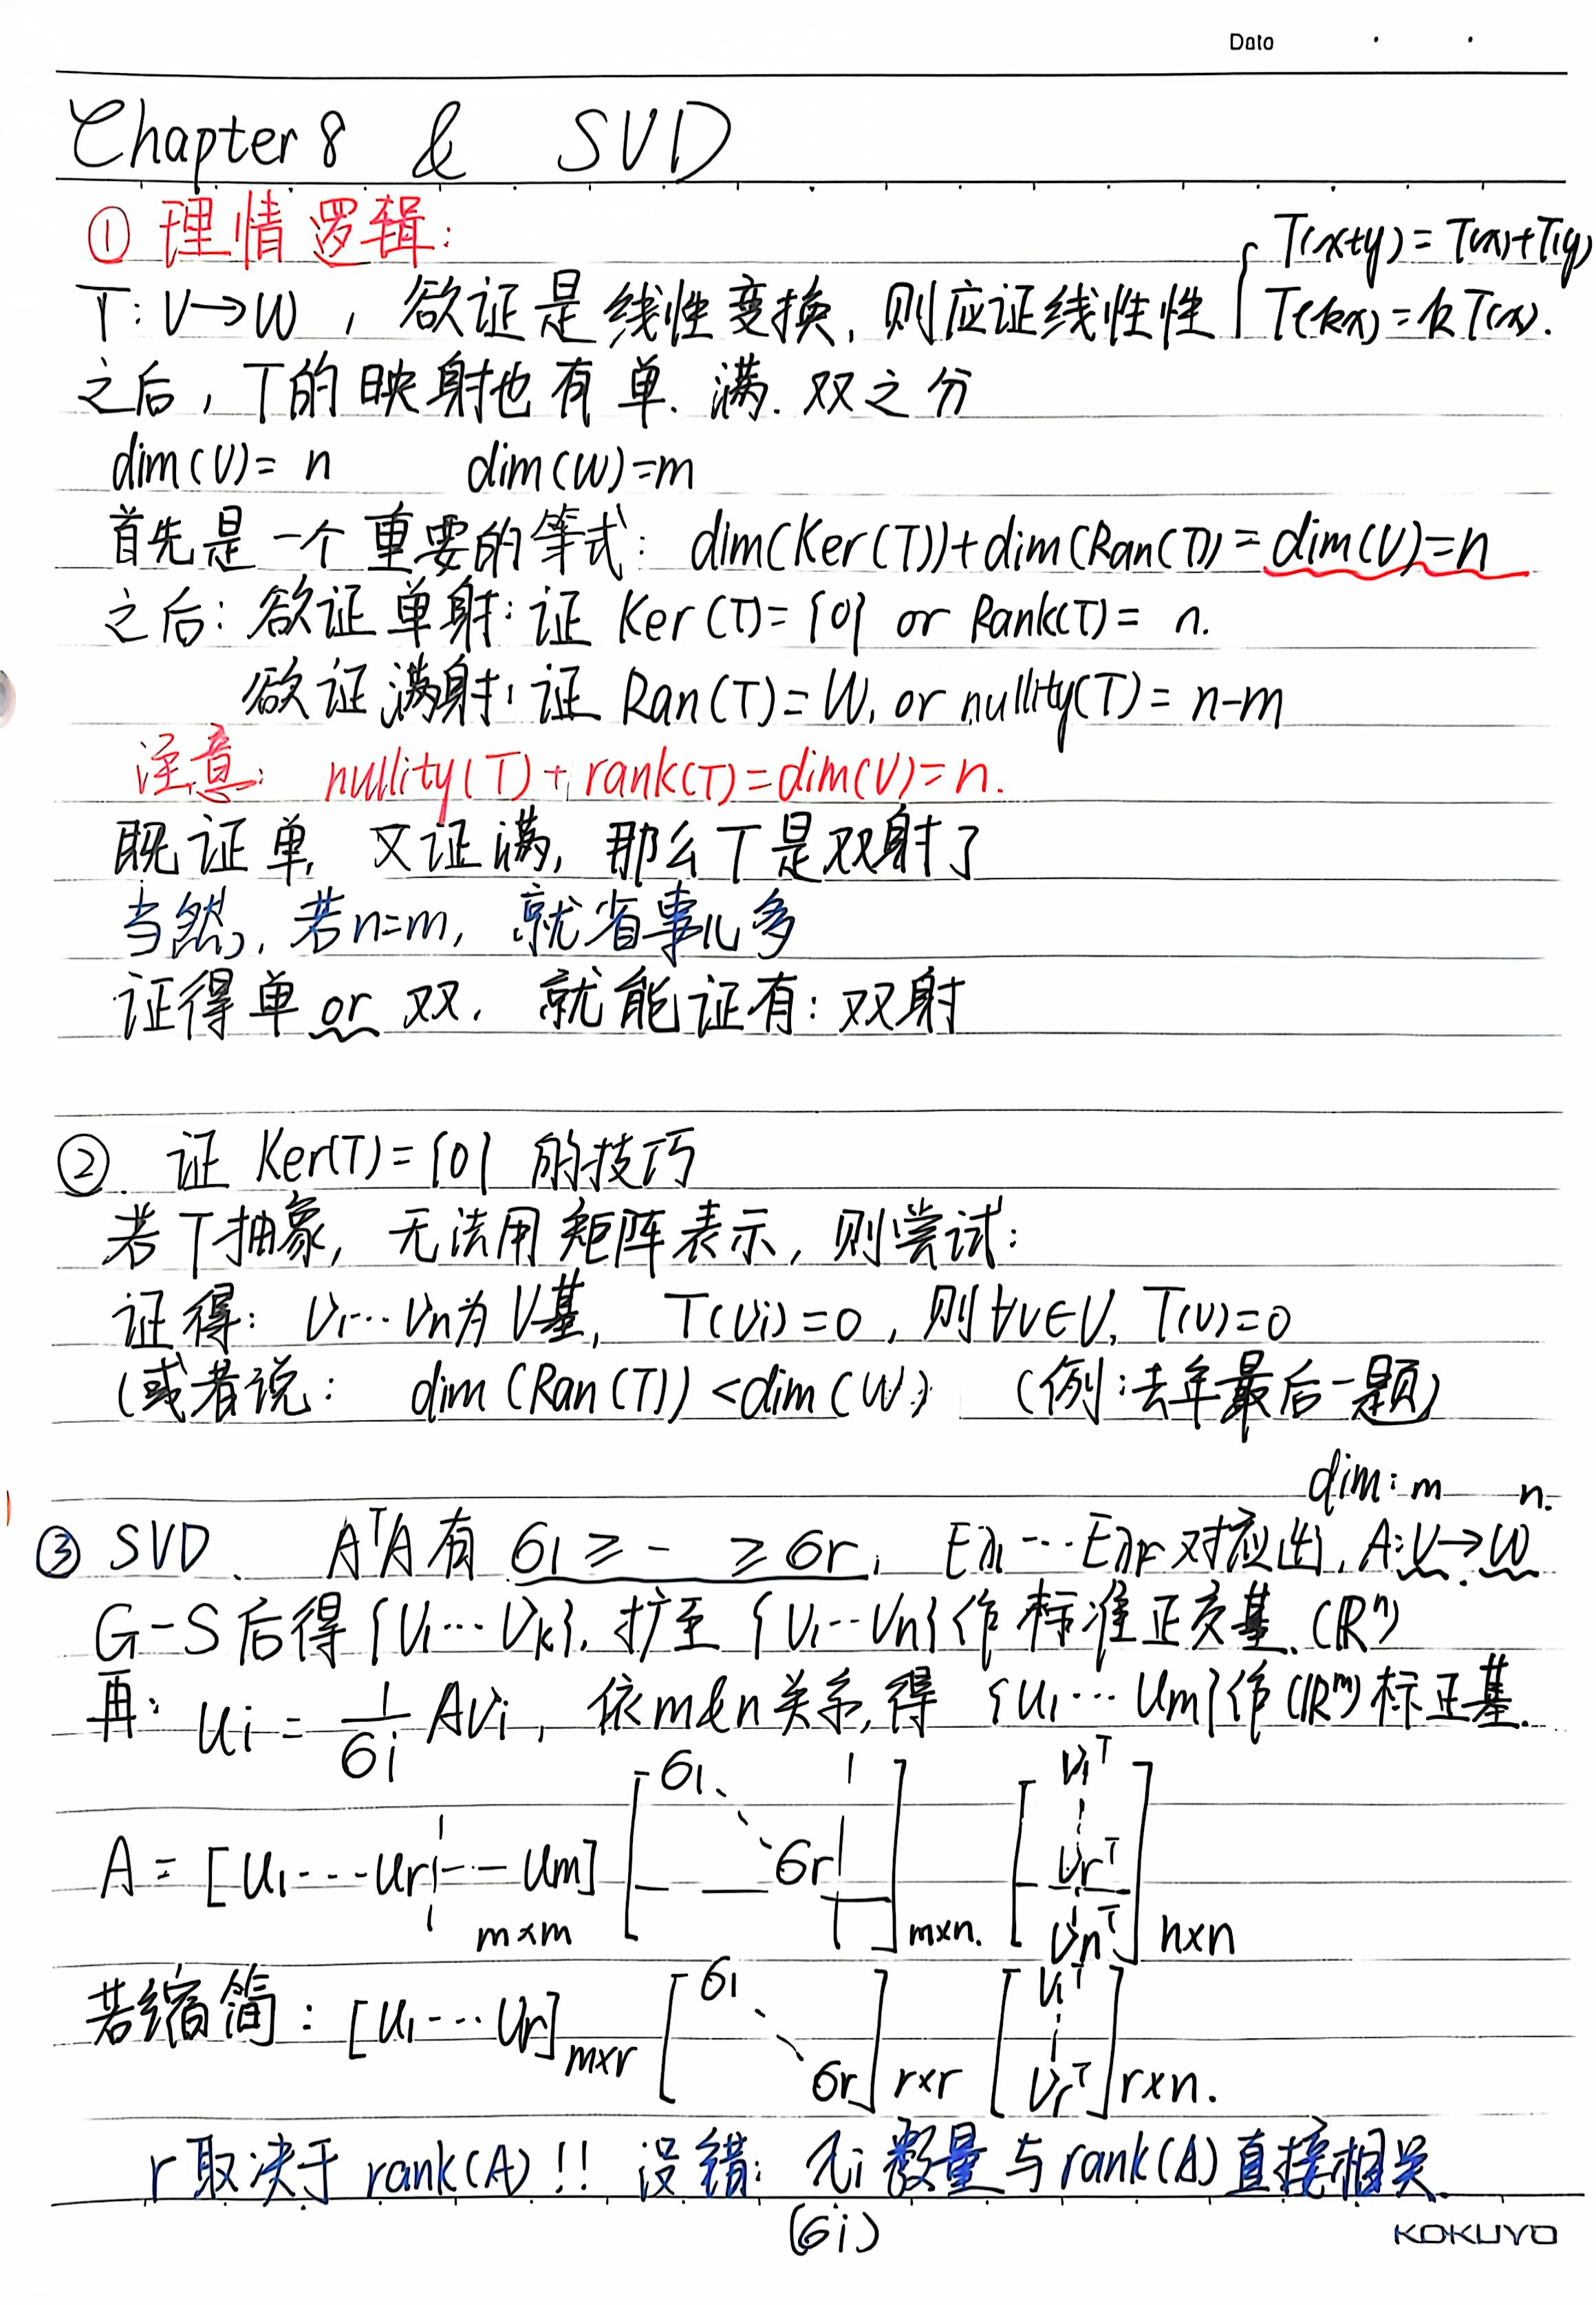 Dato
Chapter 8 & SVD
① 理情逻辑:
T: V→W , 欲证是线性变换, 则应证线性性 { T(x+y) = T(x)+T(y)
T(kx) = k T(x).
之后, T的映射也有单. 满. 双之分
dim(V) = n dim(W)=m
首先是一个重要的等式: dim(Ker(T))+dim(Ran(T)) = dim(V)=n
之后: 欲证单射: 证 Ker(T)= {0} or Rank(T)= n.
欲证满射: 证 Ran(T)= W, or nullity(T)= n-m
注意: nullity(T) + rank(T)=dim(V)=n.
既证单, 又证满, 那么T是双射了
当然, 若n=m, 就省事儿多
证得单 or 双, 就能证有: 双射
② 证 Ker(T)= {0} 的技巧
若T抽象, 无法用矩阵表示, 则尝试:
证得: V1…Vn为V基, T(Vi)=0, 则∀v∈V, T(v)=0
(或者说: dim(Ran(T)) <dim(W)) (例:去年最后一题)
dim: m n.
③ SVD. AᵀA有 σ1 ≥ - ≥ σr, Eλ1…Eλr 对应出, A:V→W
G-S后得{V1…Vk}, 扩至 {V1…Vn}作标准正交基.(Rⁿ)
再: ui = 1/σi AVi, 依m&n关系,得 {u1…um}作(Rᵐ)标正基.
A = [u1---ur¦-- um] m×m [σ1 ⋱ σr] m×n. [V1ᵀ ⋮ Vrᵀ ⋮ Vnᵀ] n×n
若缩简: [u1…ur] m×r [σ1 ⋱ σr] r×r [V1ᵀ ⋮ Vrᵀ] r×n.
r取决于 rank(A)!! 没错: λi 数量与 rank(A)直接相关.
(σi)
KOKUYO